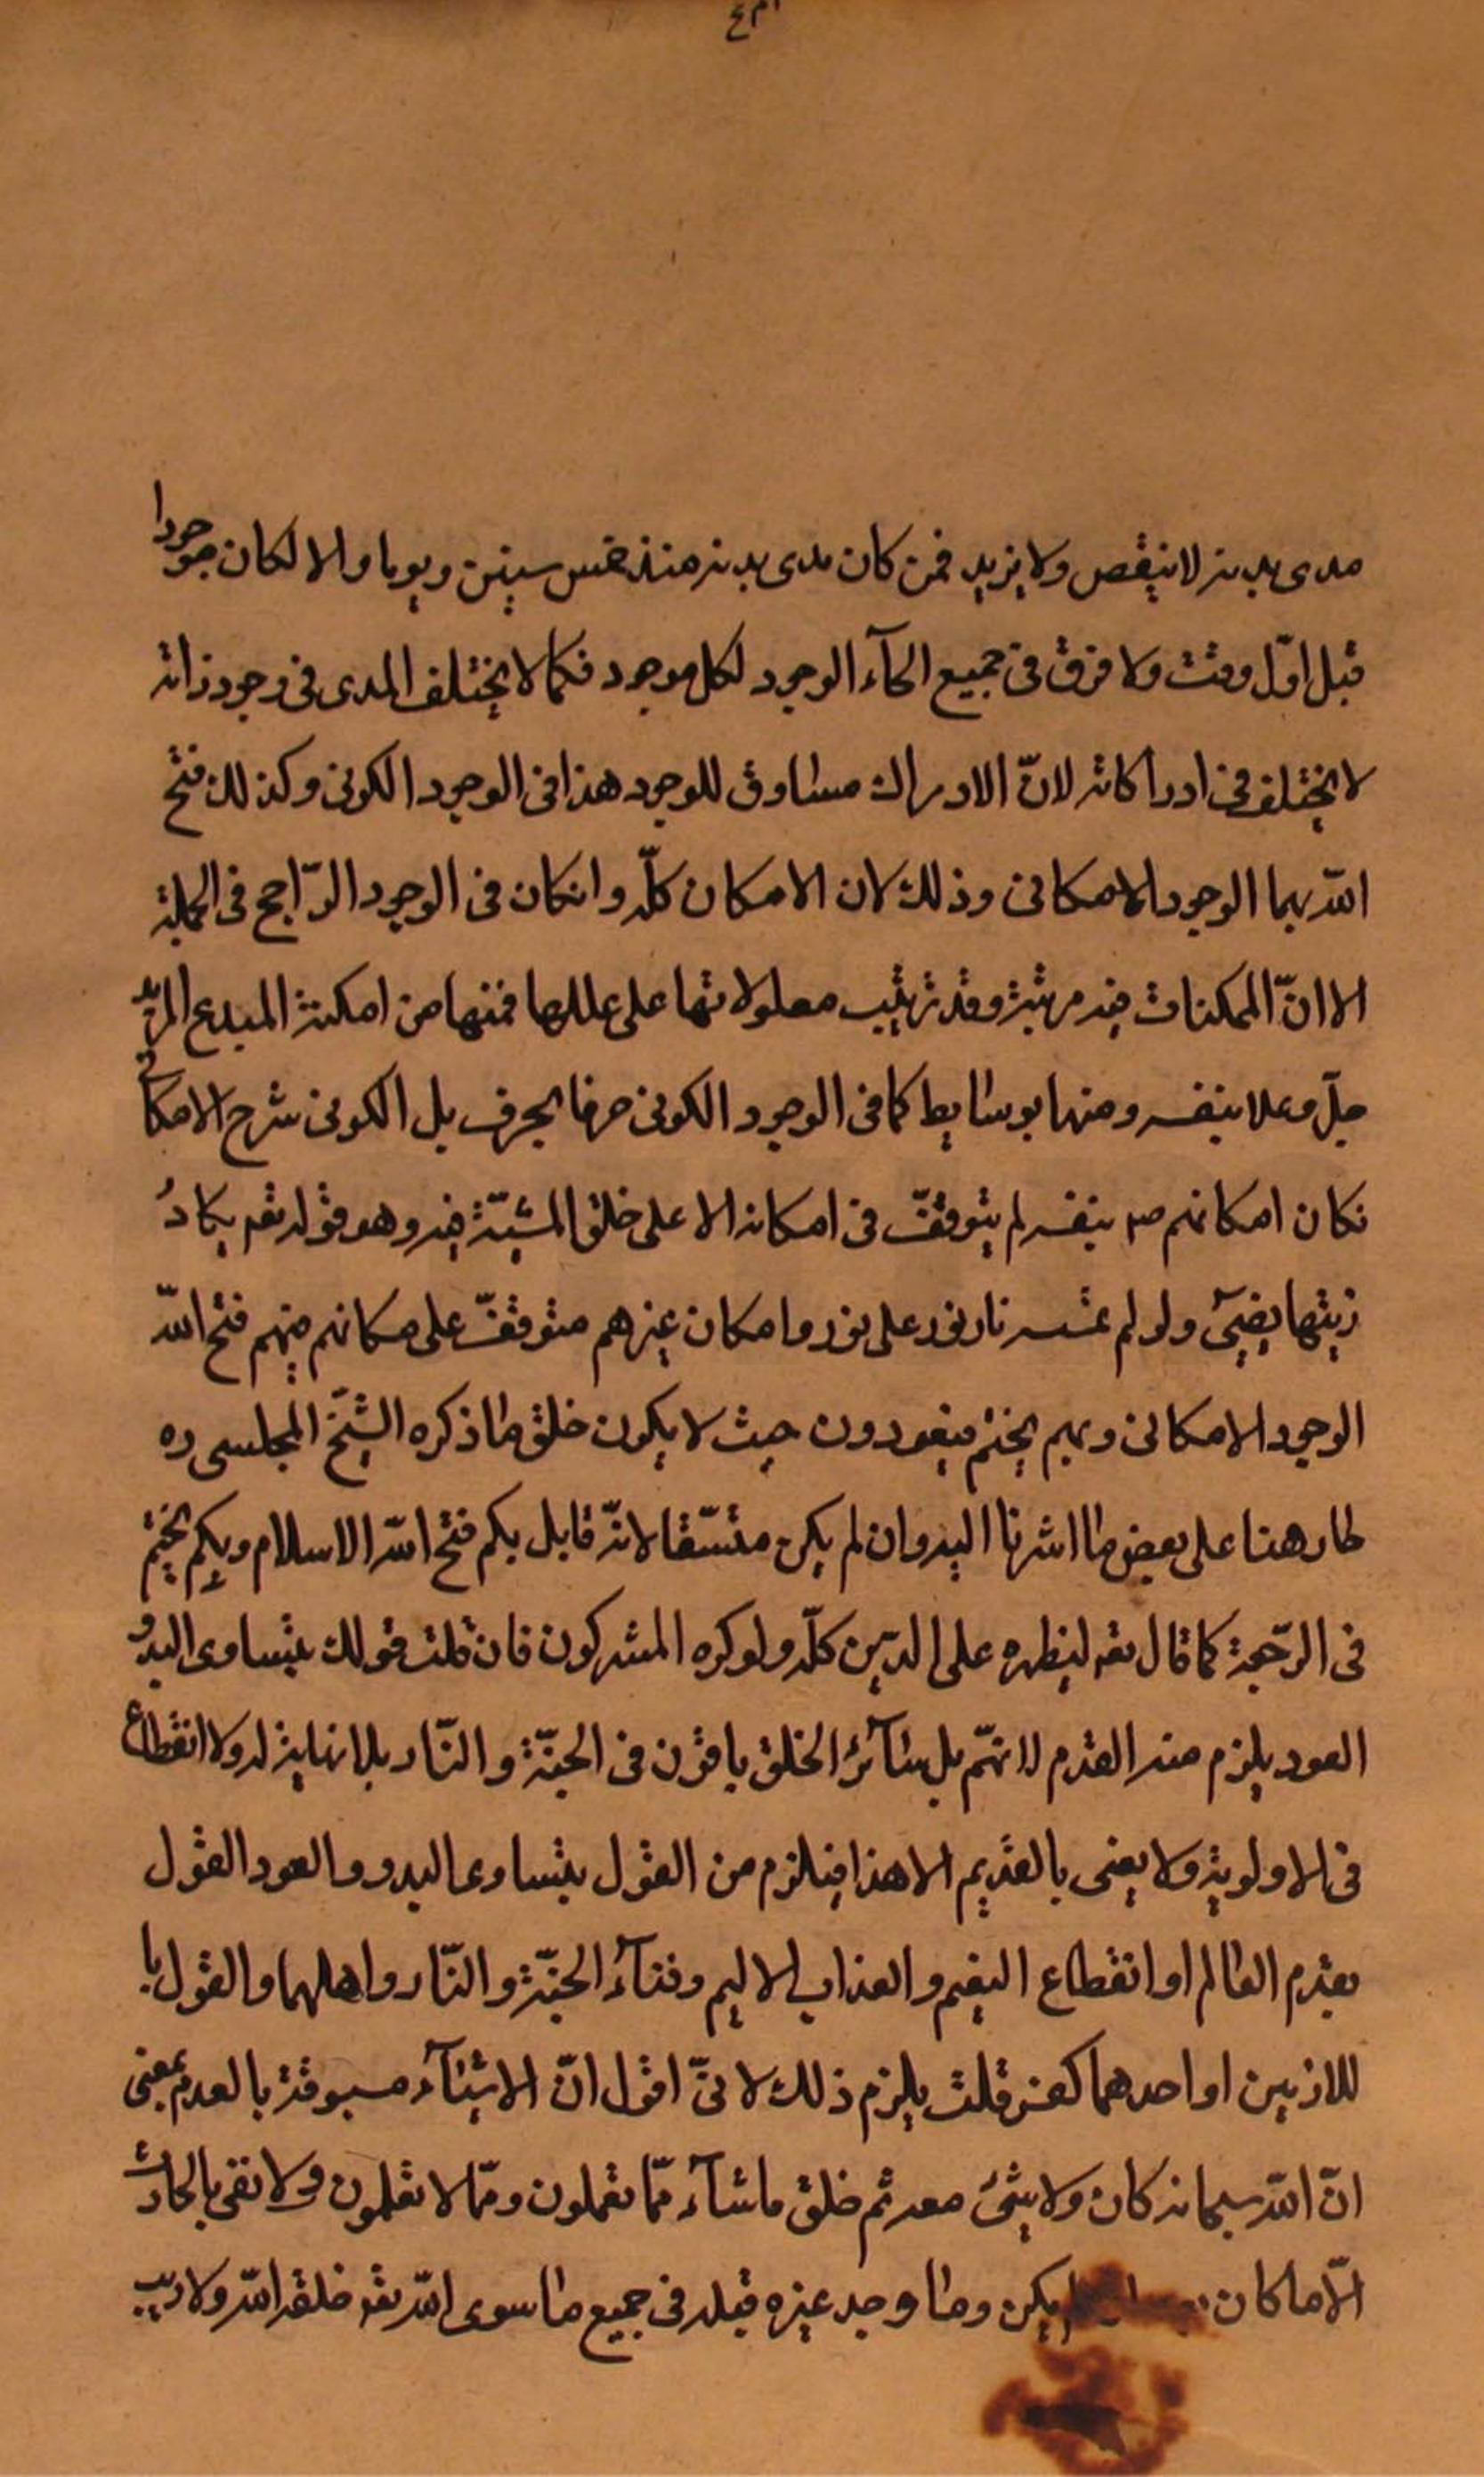 مدى بدنه لا ينقص ولا يزيد فمن كان مدى بدنه منذ خمس سنين ويوما والا لكان موجودا
قبل اوّل وقت ولا فرق فى جميع انحآء الوجود لكل موجود فكما لا يختلف المدى فى وجود ذاته
لا يختلف فى ادراكاته لانّ الادراك مساوق للوجود هذا فى الوجود الكونى وكذلك فتح
الله بهما الوجود الامكانى وذلك لان الامكان كلّه وانكان فى الوجود الرّاجح فى الجملة
الا انّ الممكنات فيه مرتبة وقد ترتيب معلولاتها على عللها فمنها من امكنة المبدع
جلّ وعلا بنفسه ومنها بوسايط كما فى الوجود الكونى حرفا بحرف بل الكونى شرح الامكانى
فكان امكانهم ص بنفسه لم يتوقّف فى امكانه الا على خلق المشيّة فيه وهو قوله تعه يكادُ
زيتها يضيئ ولو لم تمسسه نار نور على نور وامكان غيرهم متوقّف على مكانهم فبهم فتح الله
الوجود الامكانى وبهم يختم فيعودون حيث لا يكون خلق وما ذكره الشيخ المجلسى ره
طار هنا على بعض ما اشرنا اليه وان لم يكن متسّقا لانّه قايل بكم فتح الله الاسلام وبكم يختم
فى الرّجعة كما قال تعه ليظهره على الدّين كلّه ولو كره المشركون فان قلت قولك بتساوى البدو
العود يلزم منه القدم لانهّم بل سآئر الخلق باقون فى الجنّة والنّار بلا نهاية له ولا انقطاع
فى الاولوية ولا يعنى بالقديم الا هذا فيلزم من القول بتساوى البدو والعود القول
بقدم العالم او انقطاع النعيم والعذاب الاليم وفنآء الجنّة والنّار واهلهما والقول با
للازمين او احدهما كفر قلت يلزم ذلك لانىّ اقول انّ الاشيآء مسبوقة بالعدم بمعنى
انّ الله سبحانه كان ولا شئ معه ثم خلق ما شآء ممّا تعملون وممّا لا تعلمون ولا نعنى بالحادث
الّا ما كان يكن وما وجد غيره قبله فى جميع ما سوى الله تعه خلقه الله ولا ريب